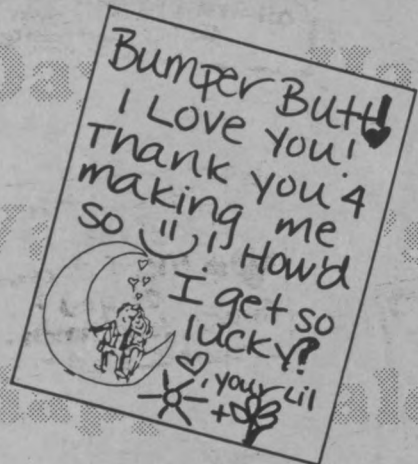 Bumper Butt!
I Love You!
Thank you 4
making me
so !! Howd
I get so
lucky?
, your Lil
+